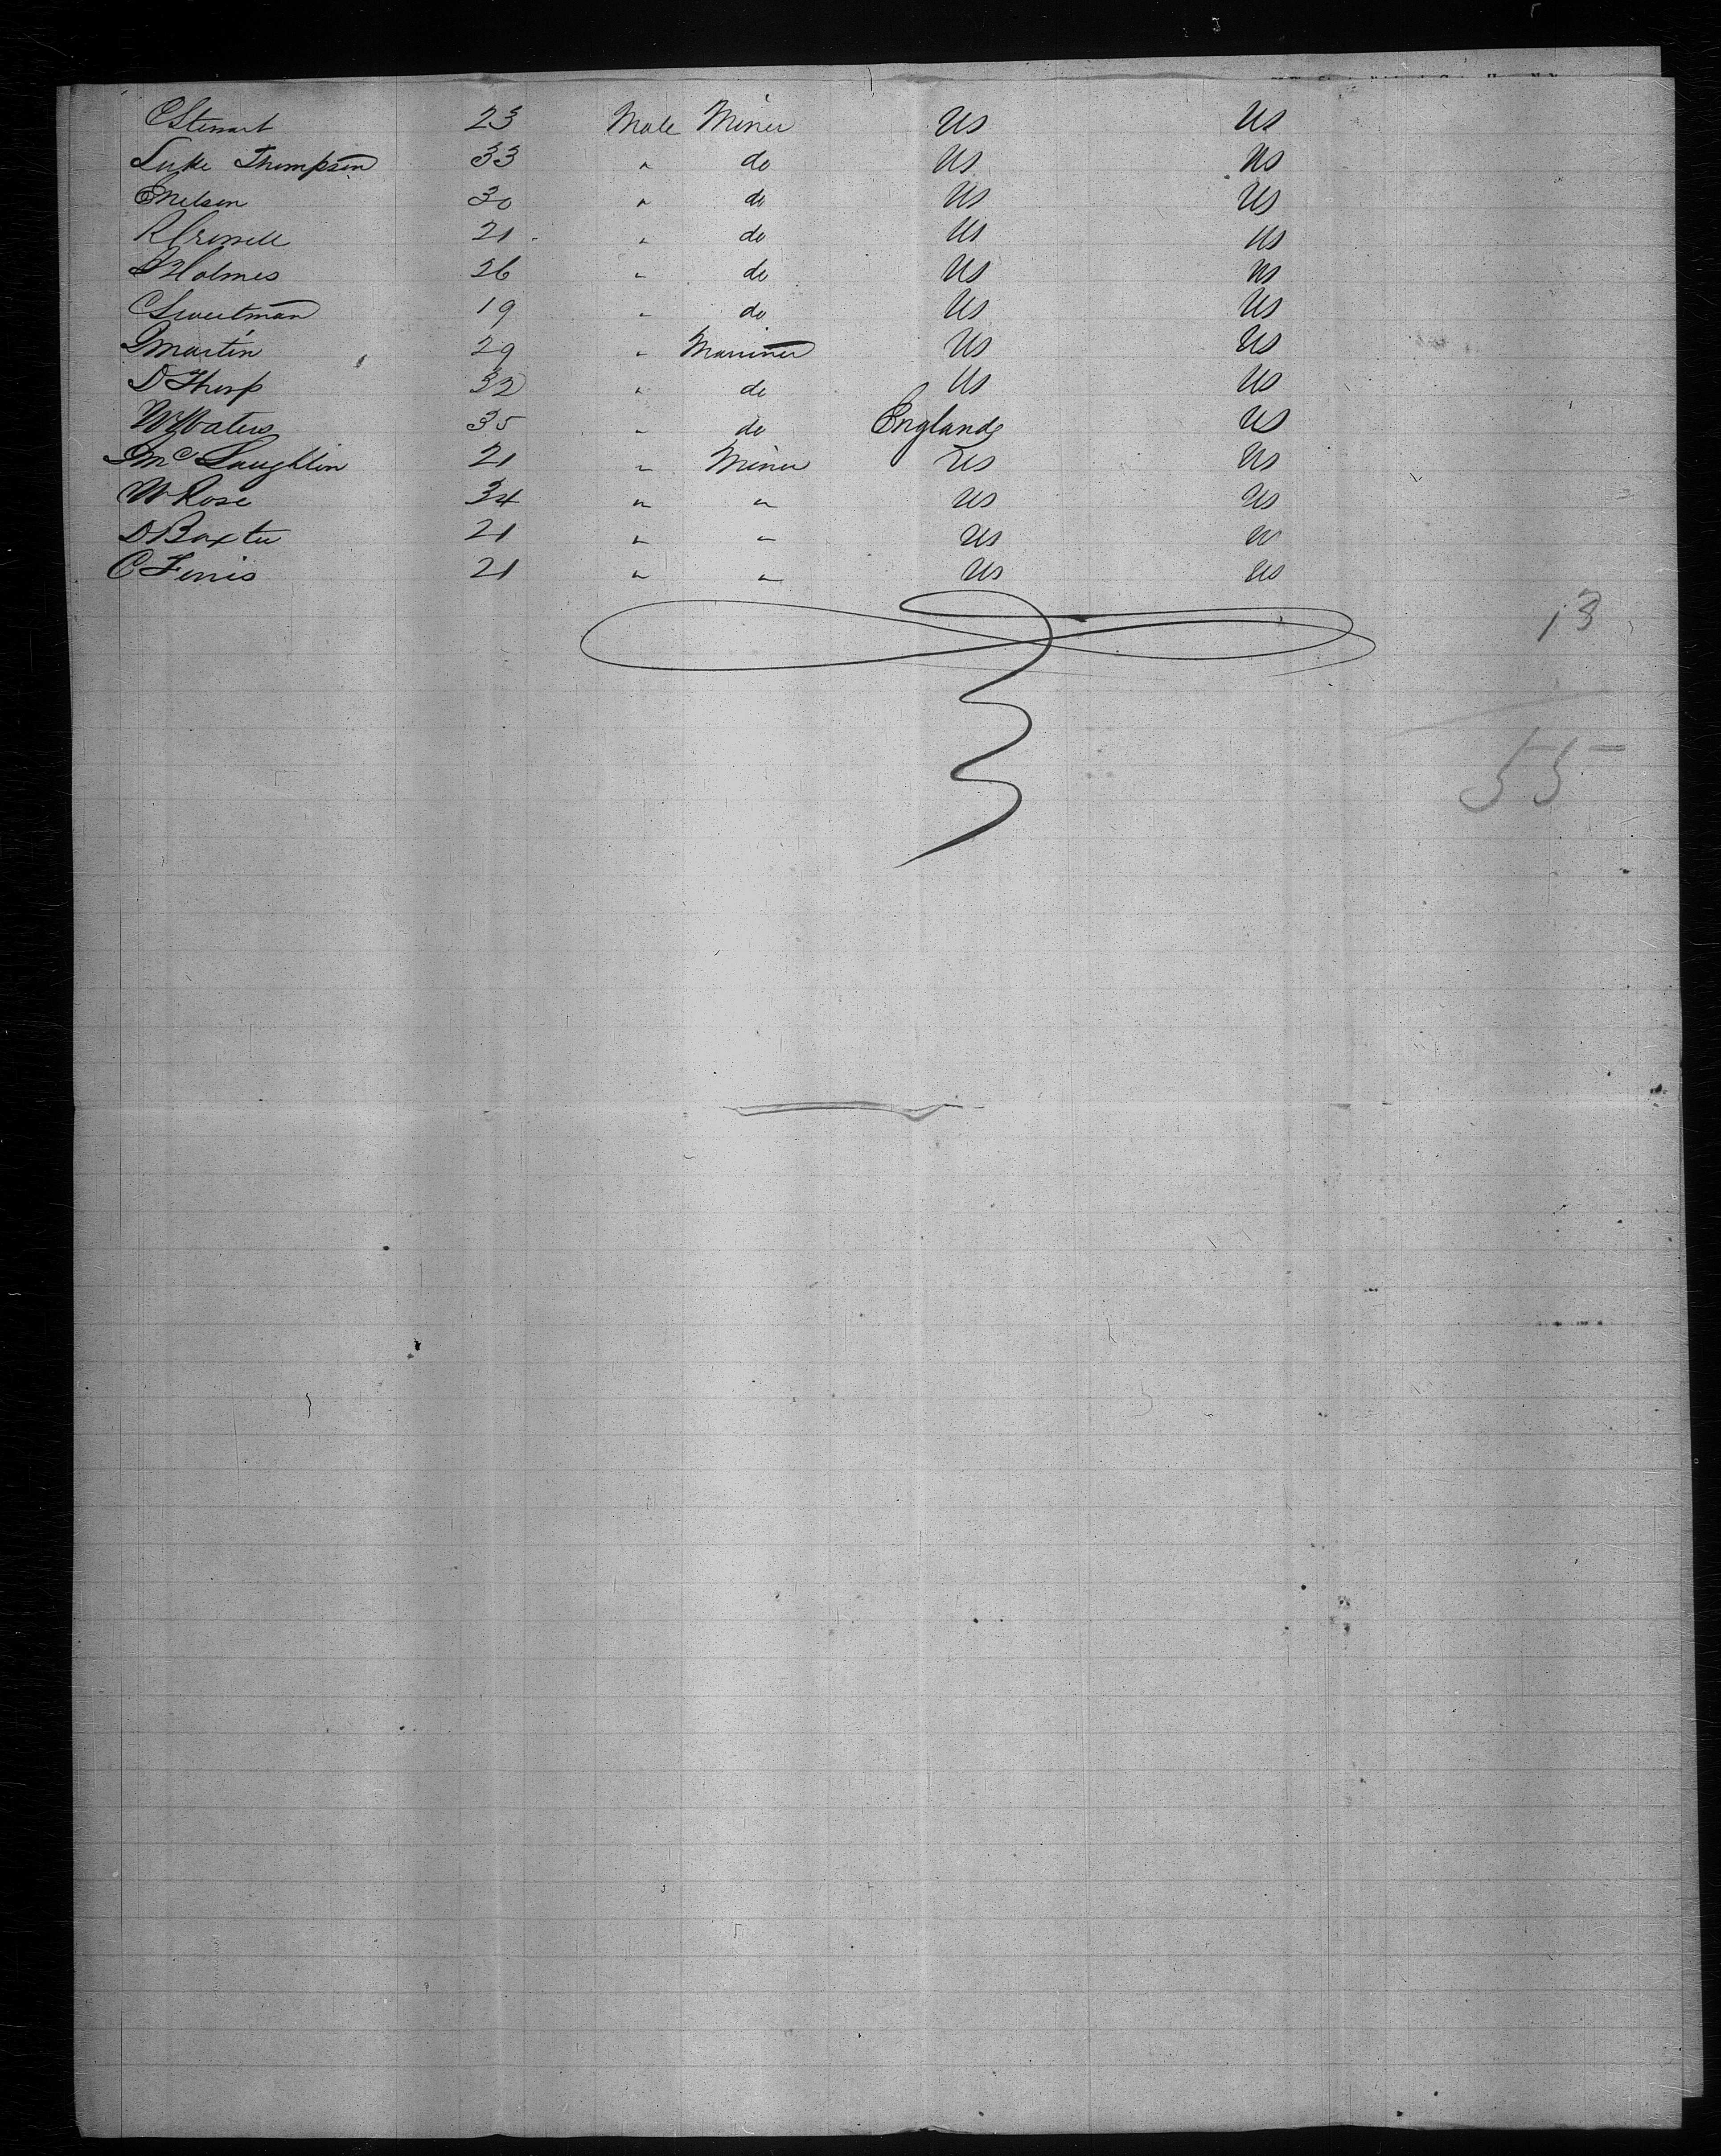 C Stewart 23 Male Miner US US
Luke Thompson 33 " do US US
E Nelson 30 " do US US
R Crowell 21 " do US US
J Holmes 26 " do US US
C Sweetman 19 " do US US
J Martin 29 " Mariner US US
D Thorp 32 " do US US
W Waters 35 " do England US
J McLaughlin 21 " Miner US US
W Rose 34 " " US US
D Baxter 21 " " US US
C Ferris 21 " " US US
13
55